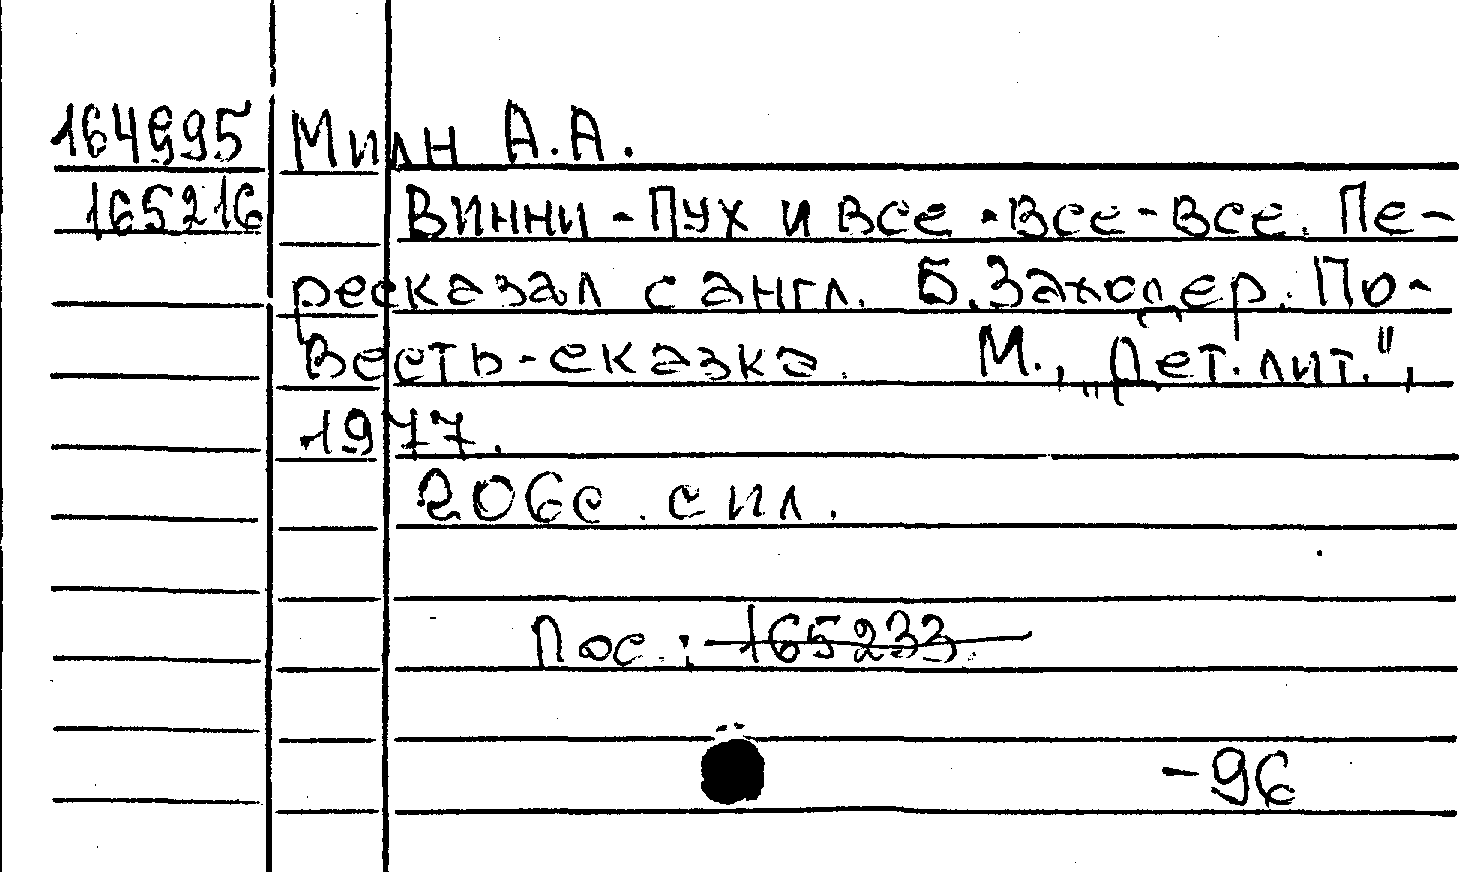 164995 Милн А.А.
165216 Винни-Пух и все-все-все. Пе-
ресказал с англ. Б.Заходер. По-
весть-сказка. М., „Дет. лит.",
1977.
206с. с ил.
Пос.: 165233
-96